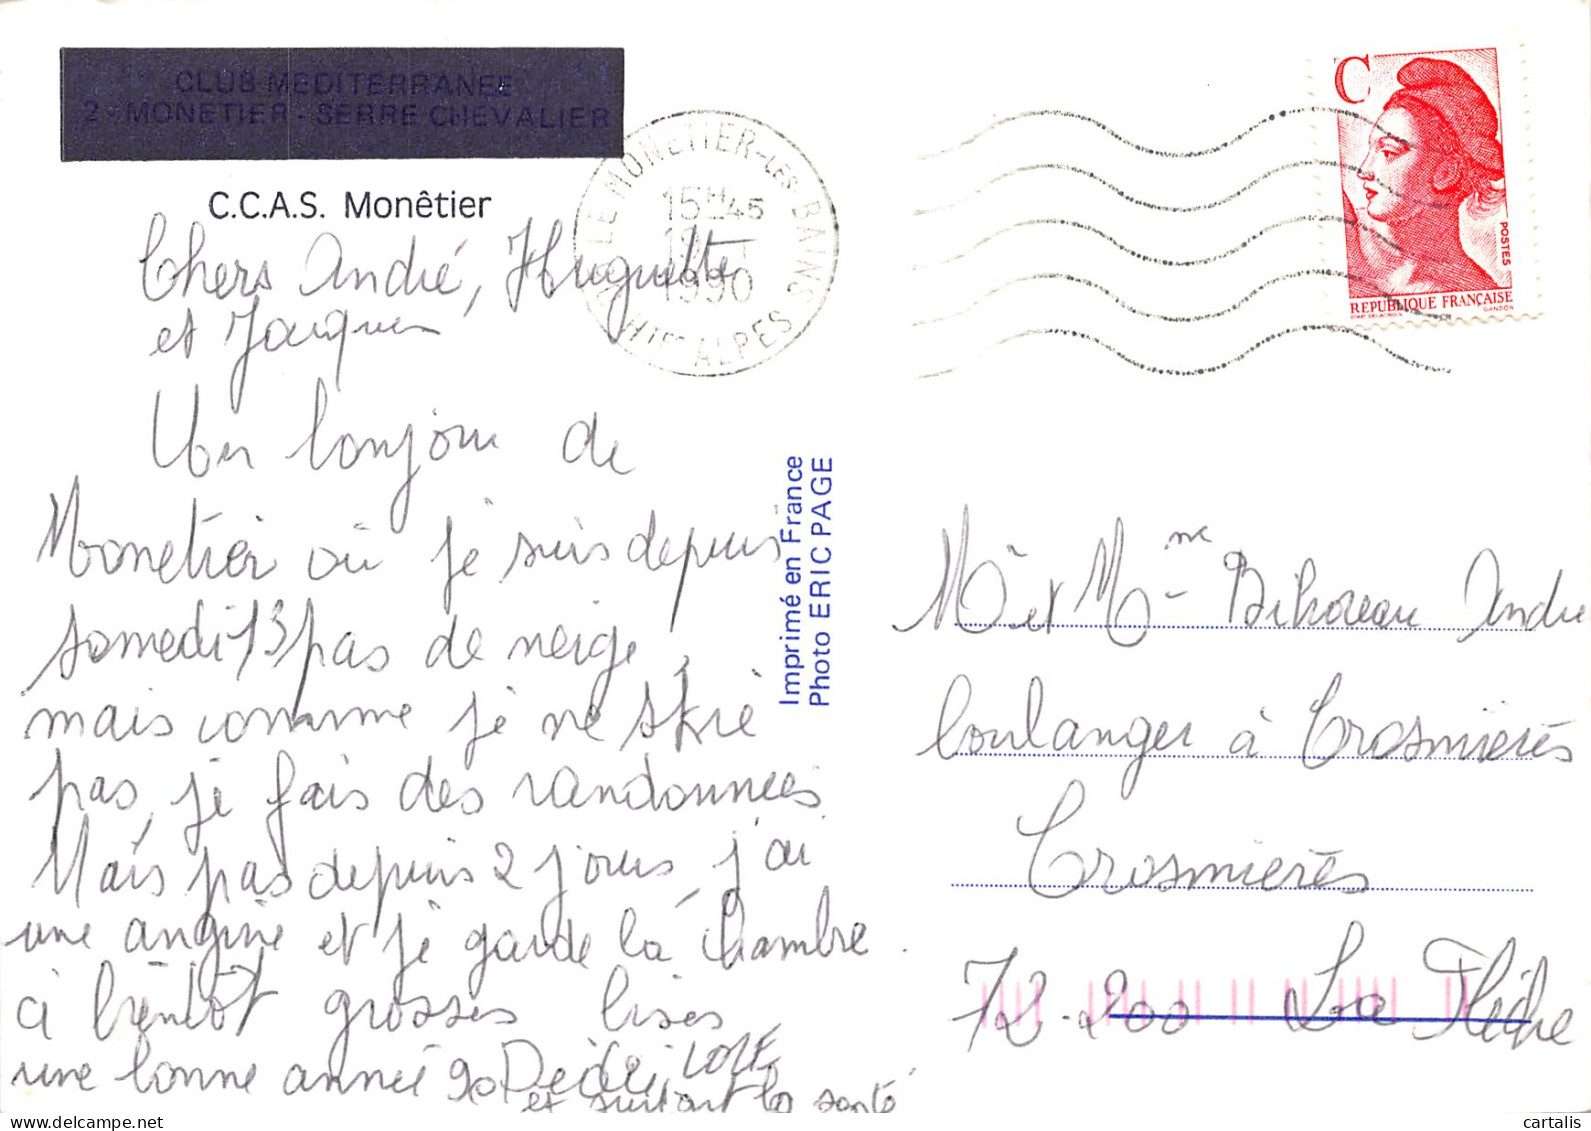 CLUB MEDITERRANEE
2 - MONETIER - SERRE CHEVALIER
C.C.A.S. Monêtier
LE MONETIER-LES BAINS
15H45
1990
Htes ALPES
C
POSTES
REPUBLIQUE FRANÇAISE
GANDON
Chers André, Huguette
et Jacques
Un bonjour de
Monetier où je suis depuis
samedi 13 pas de neige,
mais comme je ne skie
pas, je fais des randonnées
Mais pas depuis 2 jours j'ai
une angine et je garde la chambre.
à bientôt grosses bises
une bonne année 90
et surtout la santé
Imprimé en France
Photo ERIC PAGE
Mr et Mme Bihoreau André
boulanger à Crosmières
Crosmières
72.200 La Flèche
cartalis
www.delcampe.net